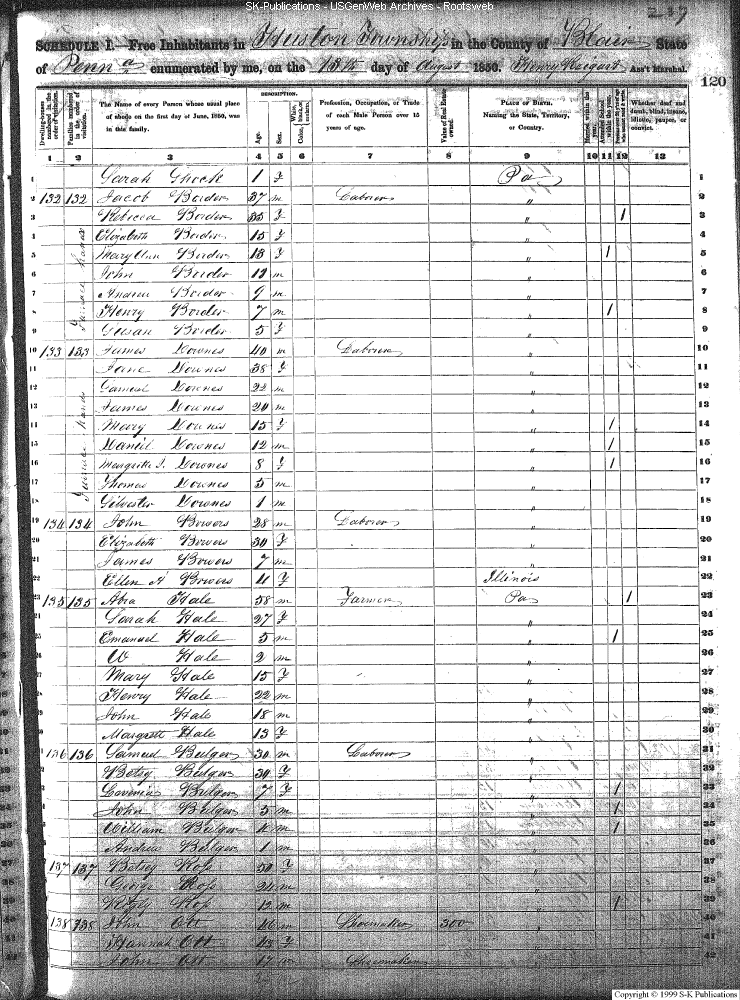 SK-Publications - USGenWeb Archives - Rootsweb
237
SCHEDULE I.—Free Inhabitants in Huston Township in the County of Blair State
of Penna enumerated by me, on the 13th day of August 1850. Henry Ass't Marshal.
120
Dwelling-houses numbered in the order of visitation. Families numbered in the order of visitation. The Name of every Person whose usual place of abode on the first day of June, 1850, was in this family. DESCRIPTION. Age. Sex. White, black, or mulatto. Color, Profession, Occupation, or Trade of each Male Person over 15 years of age. Value of Real Estate owned. PLACE OF BIRTH. Naming the State, Territory, or Country. Married within the year. Whether deaf and dumb, blind, insane, idiotic, pauper, or convict.
1 2 3 4 5 6 7 8 9 10 11 12 13
1 Sarah 1 f Pa 1
2 132 132 Jacob Border 37 m Laborer " 2
3 Rebecca Border 35 f " / 3
4 Elizabeth Border 15 f " 4
5 Mary Ann Border 13 f " / 5
6 John Border 11 m " 6
7 Andrew Border 9 m " 7
8 Henry Border 7 m " / 8
9 Susan Border 5 f " 9
10 133 133 James Downes 40 m Laborer " 10
11 Jane Downes 38 f " 11
12 Samuel Downes 22 m " 12
13 James Downes 20 m " 13
14 Mary Downes 15 f " / 14
15 Daniel Downes 12 m " / 15
16 Downes 8 f " / 16
17 Thomas Downes 5 m " 17
18 Silvester Downes 1 m " 18
19 134 134 John Bowers 28 m Laborer " 19
20 Elizabeth Bowers 30 f " 20
21 James Bowers 7 m " 21
22 Ellen A Bowers 4 f Illinois 22
23 135 135 Abra Hale 58 m Farmer Pa / 23
24 Sarah Hale 27 f " 24
25 Emanuel Hale 5 m " / 25
26 W Hale 2 m " 26
27 Mary Hale 15 f " 27
28 Henry Hale 22 m " 28
29 John Hale 18 m " 29
30 Margrett Hale 13 f " 30
31 136 136 Samuel Bulger 30 m Laborer " 31
32 Betsy Bulger 30 f " 32
33 Bulger 7 f " / 33
34 John Bulger 5 m " / 34
35 William Bulger m " / 35
36 Andrew Bulger 1 m " 36
37 137 137 Betsy Ross 50 f " 37
38 George Ross 24 m " 38
39 Ross 12 m " / 39
40 138 138 John Ott 46 m Shoemaker 300 " 40
41 Hannah Ott 43 f " 41
42 John Ott 17 m Shoemaker " 42
Copyright © 1999 S-K Publications